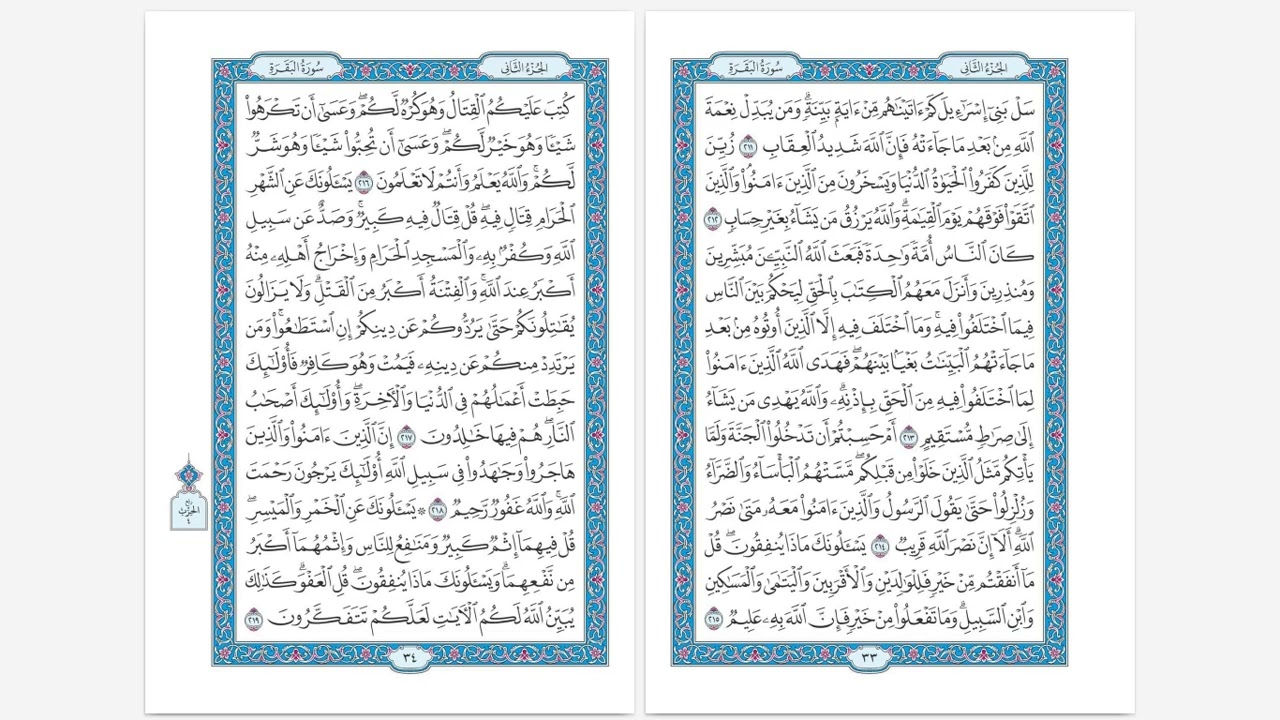 الجُزْءُ الثَّانِي
سُورَةُ البَقَرَةِ
سَلْ بَنِىٓ إِسْرَٰٓءِيلَ كَمْ ءَاتَيْنَٰهُم مِّنْ ءَايَةٍۭ بَيِّنَةٍۗ وَمَن يُبَدِّلْ نِعْمَةَ
ٱللَّهِ مِنۢ بَعْدِ مَا جَآءَتْهُ فَإِنَّ ٱللَّهَ شَدِيدُ ٱلْعِقَابِ ٢١١ زُيِّنَ
لِلَّذِينَ كَفَرُواْ ٱلْحَيَوٰةُ ٱلدُّنْيَا وَيَسْخَرُونَ مِنَ ٱلَّذِينَ ءَامَنُواْۘ وَٱلَّذِينَ
ٱتَّقَوْاْ فَوْقَهُمْ يَوْمَ ٱلْقِيَٰمَةِۗ وَٱللَّهُ يَرْزُقُ مَن يَشَآءُ بِغَيْرِ حِسَابٍ ٢١٢
كَانَ ٱلنَّاسُ أُمَّةً وَٰحِدَةً فَبَعَثَ ٱللَّهُ ٱلنَّبِيِّـۧنَ مُبَشِّرِينَ
وَمُنذِرِينَ وَأَنزَلَ مَعَهُمُ ٱلْكِتَٰبَ بِٱلْحَقِّ لِيَحْكُمَ بَيْنَ ٱلنَّاسِ
فِيمَا ٱخْتَلَفُواْ فِيهِۚ وَمَا ٱخْتَلَفَ فِيهِ إِلَّا ٱلَّذِينَ أُوتُوهُ مِنۢ بَعْدِ
مَا جَآءَتْهُمُ ٱلْبَيِّنَٰتُ بَغْيَۢا بَيْنَهُمْۖ فَهَدَى ٱللَّهُ ٱلَّذِينَ ءَامَنُواْ
لِمَا ٱخْتَلَفُواْ فِيهِ مِنَ ٱلْحَقِّ بِإِذْنِهِۦۗ وَٱللَّهُ يَهْدِى مَن يَشَآءُ
إِلَىٰ صِرَٰطٍ مُّسْتَقِيمٍ ٢١٣ أَمْ حَسِبْتُمْ أَن تَدْخُلُواْ ٱلْجَنَّةَ وَلَمَّا
يَأْتِكُم مَّثَلُ ٱلَّذِينَ خَلَوْاْ مِن قَبْلِكُمۖ مَّسَّتْهُمُ ٱلْبَأْسَآءُ وَٱلضَّرَّآءُ
وَزُلْزِلُواْ حَتَّىٰ يَقُولَ ٱلرَّسُولُ وَٱلَّذِينَ ءَامَنُواْ مَعَهُۥ مَتَىٰ نَصْرُ
ٱللَّهِۗ أَلَآ إِنَّ نَصْرَ ٱللَّهِ قَرِيبٌ ٢١٤ يَسْـَٔلُونَكَ مَاذَا يُنفِقُونَۖ قُلْ
مَآ أَنفَقْتُم مِّنْ خَيْرٍ فَلِلْوَٰلِدَيْنِ وَٱلْأَقْرَبِينَ وَٱلْيَتَٰمَىٰ وَٱلْمَسَٰكِينِ
وَٱبْنِ ٱلسَّبِيلِۗ وَمَا تَفْعَلُواْ مِنْ خَيْرٍ فَإِنَّ ٱللَّهَ بِهِۦ عَلِيمٌ ٢١٥
٣٣
الجُزْءُ الثَّانِي
سُورَةُ البَقَرَةِ
كُتِبَ عَلَيْكُمُ ٱلْقِتَالُ وَهُوَ كُرْهٌ لَّكُمْۖ وَعَسَىٰٓ أَن تَكْرَهُواْ
شَيْـًٔا وَهُوَ خَيْرٌ لَّكُمْۖ وَعَسَىٰٓ أَن تُحِبُّواْ شَيْـًٔا وَهُوَ شَرٌّ
لَّكُمْۚ وَٱللَّهُ يَعْلَمُ وَأَنتُمْ لَا تَعْلَمُونَ ٢١٦ يَسْـَٔلُونَكَ عَنِ ٱلشَّهْرِ
ٱلْحَرَامِ قِتَالٍ فِيهِۖ قُلْ قِتَالٌ فِيهِ كَبِيرٌۚ وَصَدٌّ عَن سَبِيلِ
ٱللَّهِ وَكُفْرٌۢ بِهِۦ وَٱلْمَسْجِدِ ٱلْحَرَامِ وَإِخْرَاجُ أَهْلِهِۦ مِنْهُ
أَكْبَرُ عِندَ ٱللَّهِۚ وَٱلْفِتْنَةُ أَكْبَرُ مِنَ ٱلْقَتْلِۗ وَلَا يَزَالُونَ
يُقَٰتِلُونَكُمْ حَتَّىٰ يَرُدُّوكُمْ عَن دِينِكُمْ إِنِ ٱسْتَطَٰعُواْۚ وَمَن
يَرْتَدِدْ مِنكُمْ عَن دِينِهِۦ فَيَمُتْ وَهُوَ كَافِرٌ فَأُوْلَٰٓئِكَ
حَبِطَتْ أَعْمَٰلُهُمْ فِى ٱلدُّنْيَا وَٱلْأٓخِرَةِۖ وَأُوْلَٰٓئِكَ أَصْحَٰبُ
ٱلنَّارِۖ هُمْ فِيهَا خَٰلِدُونَ ٢١٧ إِنَّ ٱلَّذِينَ ءَامَنُواْ وَٱلَّذِينَ
هَاجَرُواْ وَجَٰهَدُواْ فِى سَبِيلِ ٱللَّهِ أُوْلَٰٓئِكَ يَرْجُونَ رَحْمَتَ
ٱللَّهِۚ وَٱللَّهُ غَفُورٌ رَّحِيمٌ ٢١٨ ۞ يَسْـَٔلُونَكَ عَنِ ٱلْخَمْرِ وَٱلْمَيْسِرِۖ
قُلْ فِيهِمَآ إِثْمٌ كَبِيرٌ وَمَنَٰفِعُ لِلنَّاسِ وَإِثْمُهُمَآ أَكْبَرُ
مِن نَّفْعِهِمَاۗ وَيَسْـَٔلُونَكَ مَاذَا يُنفِقُونَۖ قُلِ ٱلْعَفْوَۗ كَذَٰلِكَ
يُبَيِّنُ ٱللَّهُ لَكُمُ ٱلْأٓيَٰتِ لَعَلَّكُمْ تَتَفَكَّرُونَ ٢١٩
ربع
الحزب
٤
٣٤